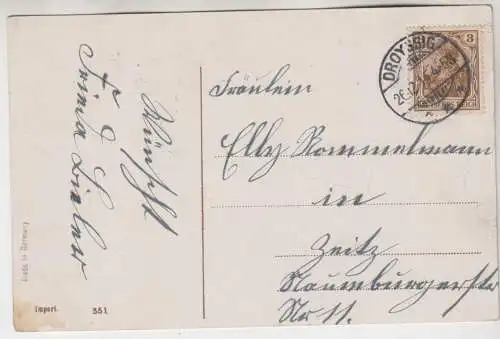 Wünscht
Frieda
Fräulein
Elly Rommelmann
in
Zeitz
Naumburgerstr
Nr 11.
3
DROYSSIG
DEUTSCHES REICH
Made in Germany
Import. 551.